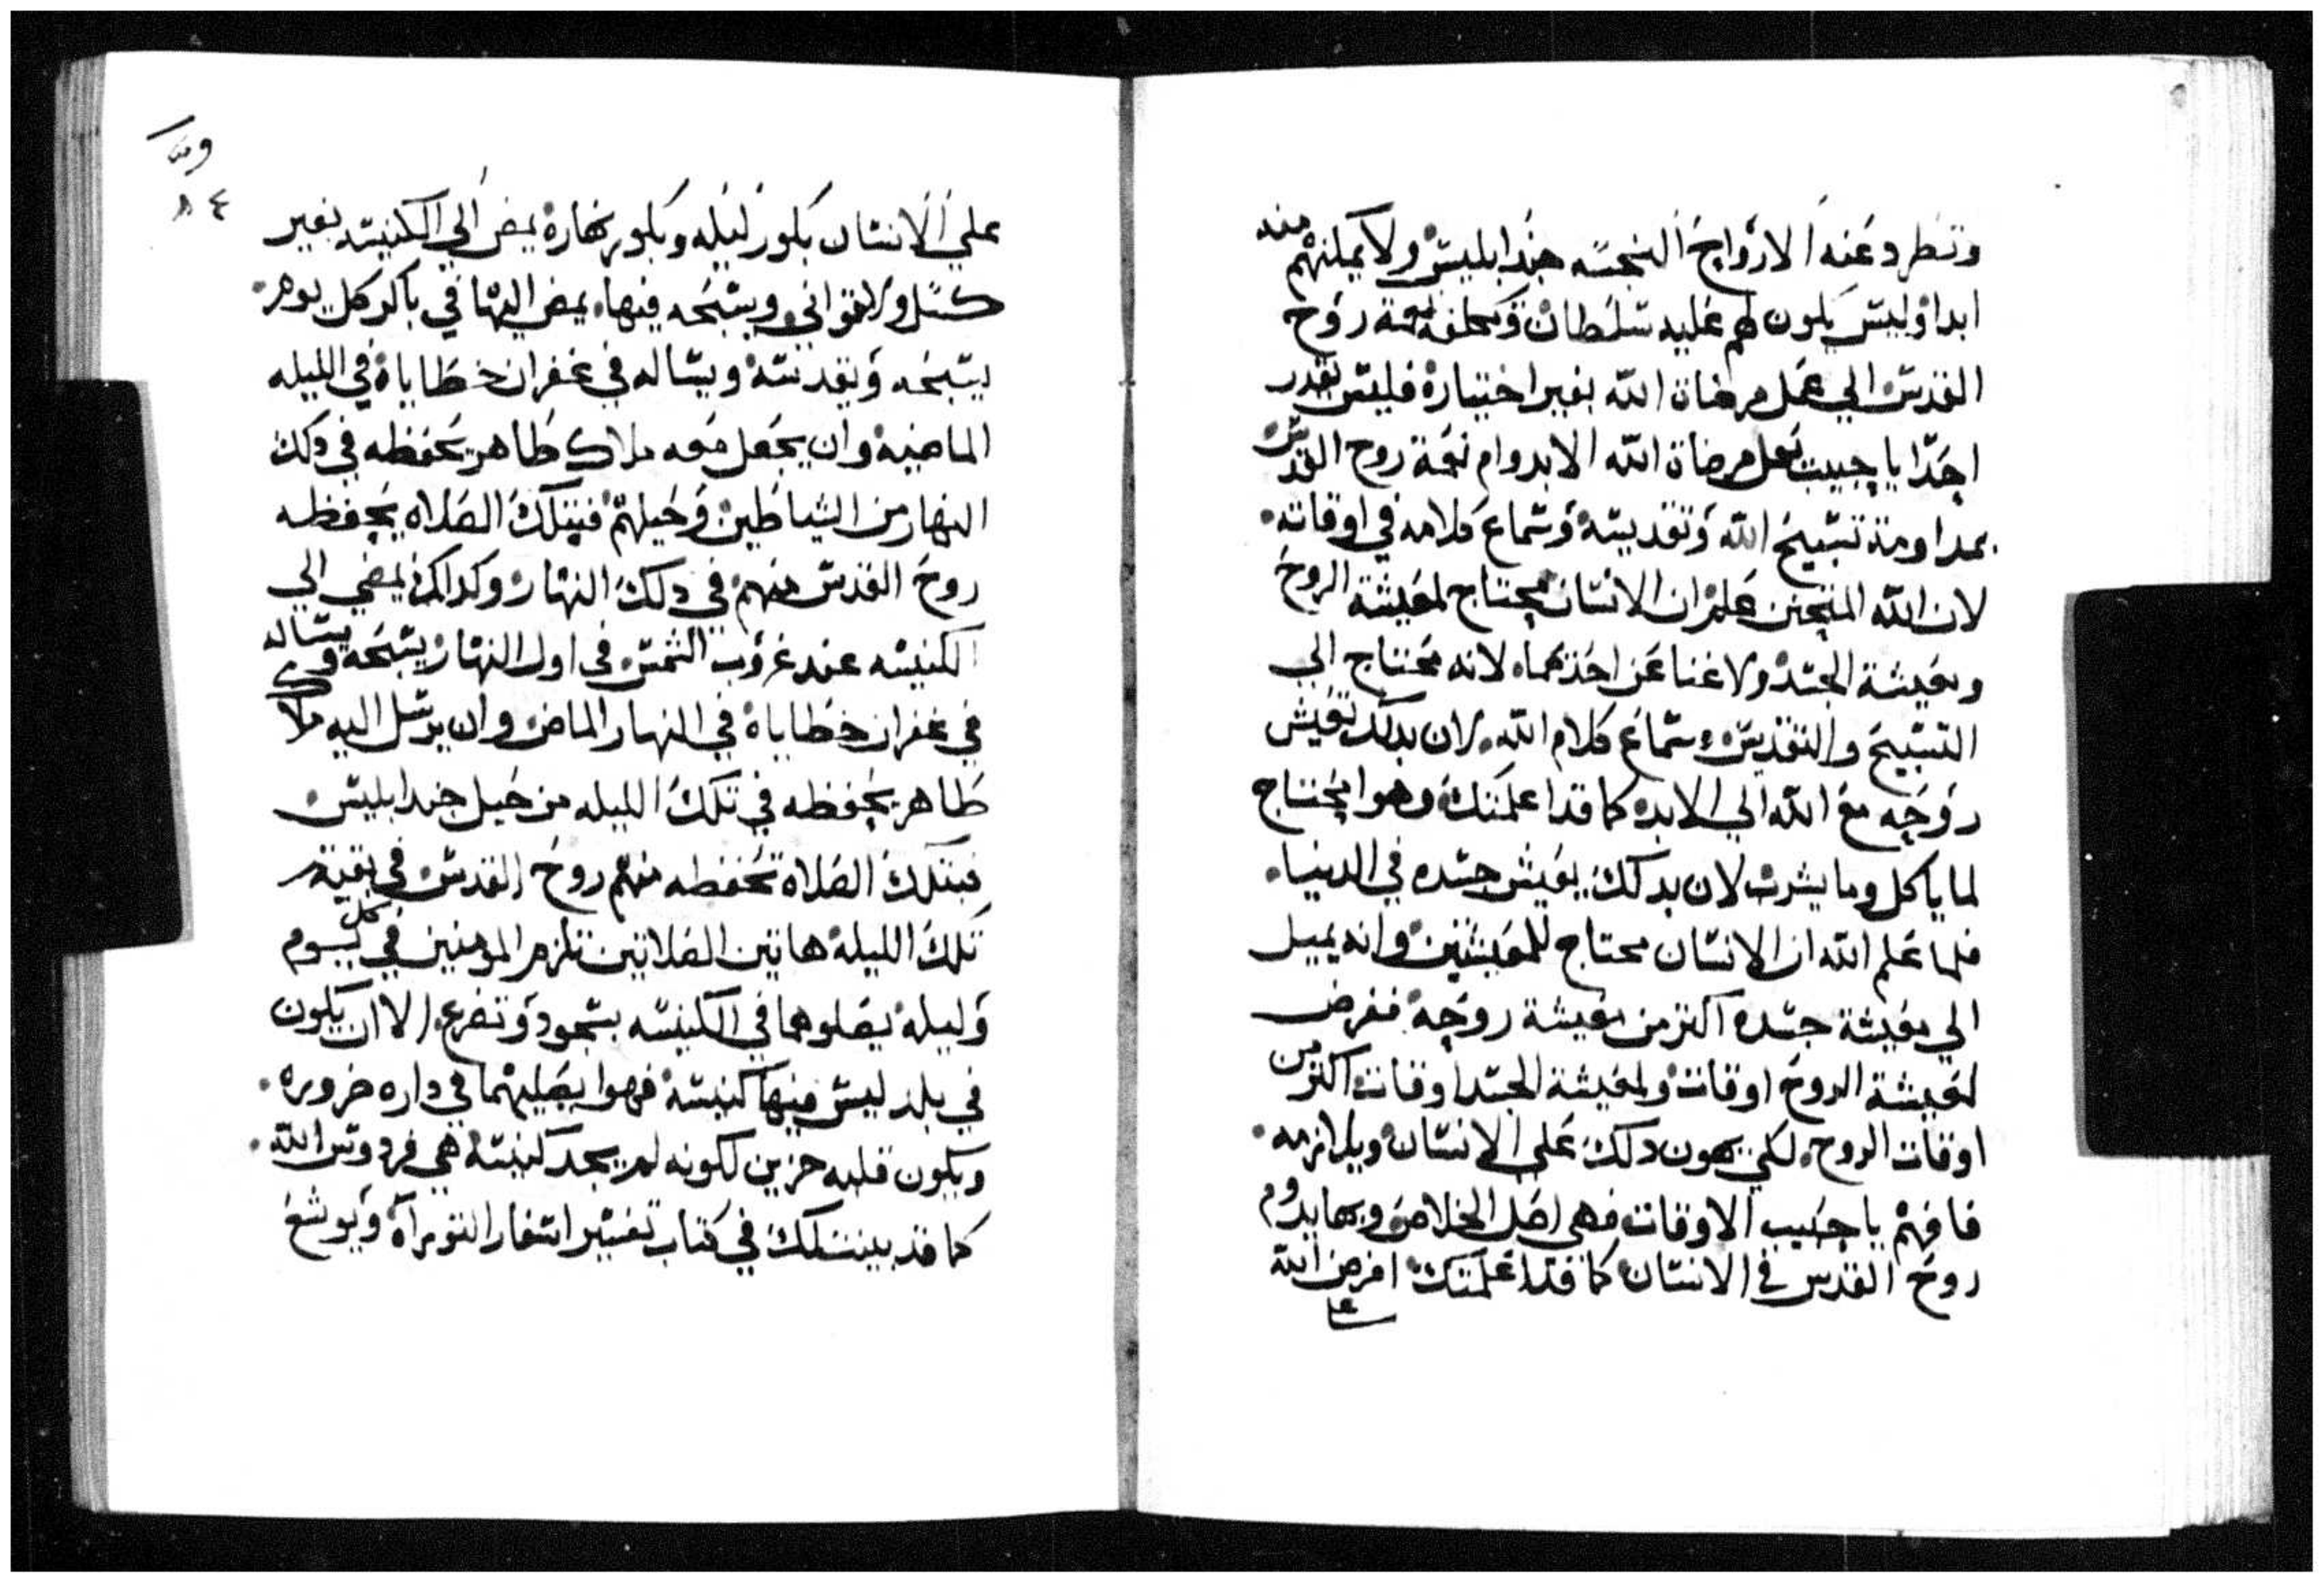 وتطرد عنه الارواح النجسه جند ابليس ولا يمكنهم منه
ابدا وليس يكون لهم عليه سلطان نعمة روح
القدس الي عمل مرضاة الله بغير اختياره فليس يقدر
احدا يا حبيب يعمل مرضاة الله الا بدوام نعمة روح القدس
بمداومة تسبيح الله وتقديسه وسماع كلامه في اوقاته
لان الله المتحنن علم ان الانسان محتاج لمعيشة الروح
ومعيشة الجسد ولا غنا عن احدهما لانه محتاج الي
التسبيح والتقديس وسماع كلام الله لان بدلك تعيش
روحه مع الله الي الابد كما قد اعلمتك وهوا محتاج
لما ياكل وما يشرب لان بدلك يعيش جسده في الدنيا
فلما علم الله ان الانسان محتاج للمعيشتين وانه يميل
الي معيشة جسده اكتر من معيشة روحه ففرض
لمعيشة الروح اوقات ولمعيشة الجسد اوقات اكتر من
اوقات الروح لكي يهون دلك علي الانسان ويلازمه
فافهم يا حبيب الاوقات فهي اصل الخلاص وبها يدوم
روح القدس في الانسان كما قد اعلمتك افرض الله
علي الانسان بكور ليله وبكور نهاره يمضي الي الكنيسه بغير
كسل ولا تواني ويسبحه فيها يمضي اليها في باكر كل يوم
يسبحه ويقدسه ويساله في غفران خطاياه في الليله
الماضيه وان يجعل معه ملاك طاهر يحفظه في دلك
النهار من الشياطين وحيلهم فبتلك الصلاه يحفظه
روح القدس منهم في دلك النهار وكدلك يمضي الي
الكنيسه عند غروب الشمس في اول النهار يسبحه ويساله
في غفران خطاياه في النهار الماضي وان يرسل اليه ملاك
طاهر يحفظه في تلك الليله من حيل جند ابليس
فبتلك الصلاة تحفظه منهم روح القدس في بقية
تلك الليله هاتين الصلاتين تلزم المومنين في كل يوم
وليله يصلوهما في الكنيسه بسجود وتضرع الا ان يكون
في بلد ليس فيها كنيسه فهوا يصليهما في داره ضروره
ويكون قلبه حزين لكونه لم يجد كنيسة هي فردوس الله
كما قد بينت لك في كتاب تفسير اسفار التوراة ويوشع